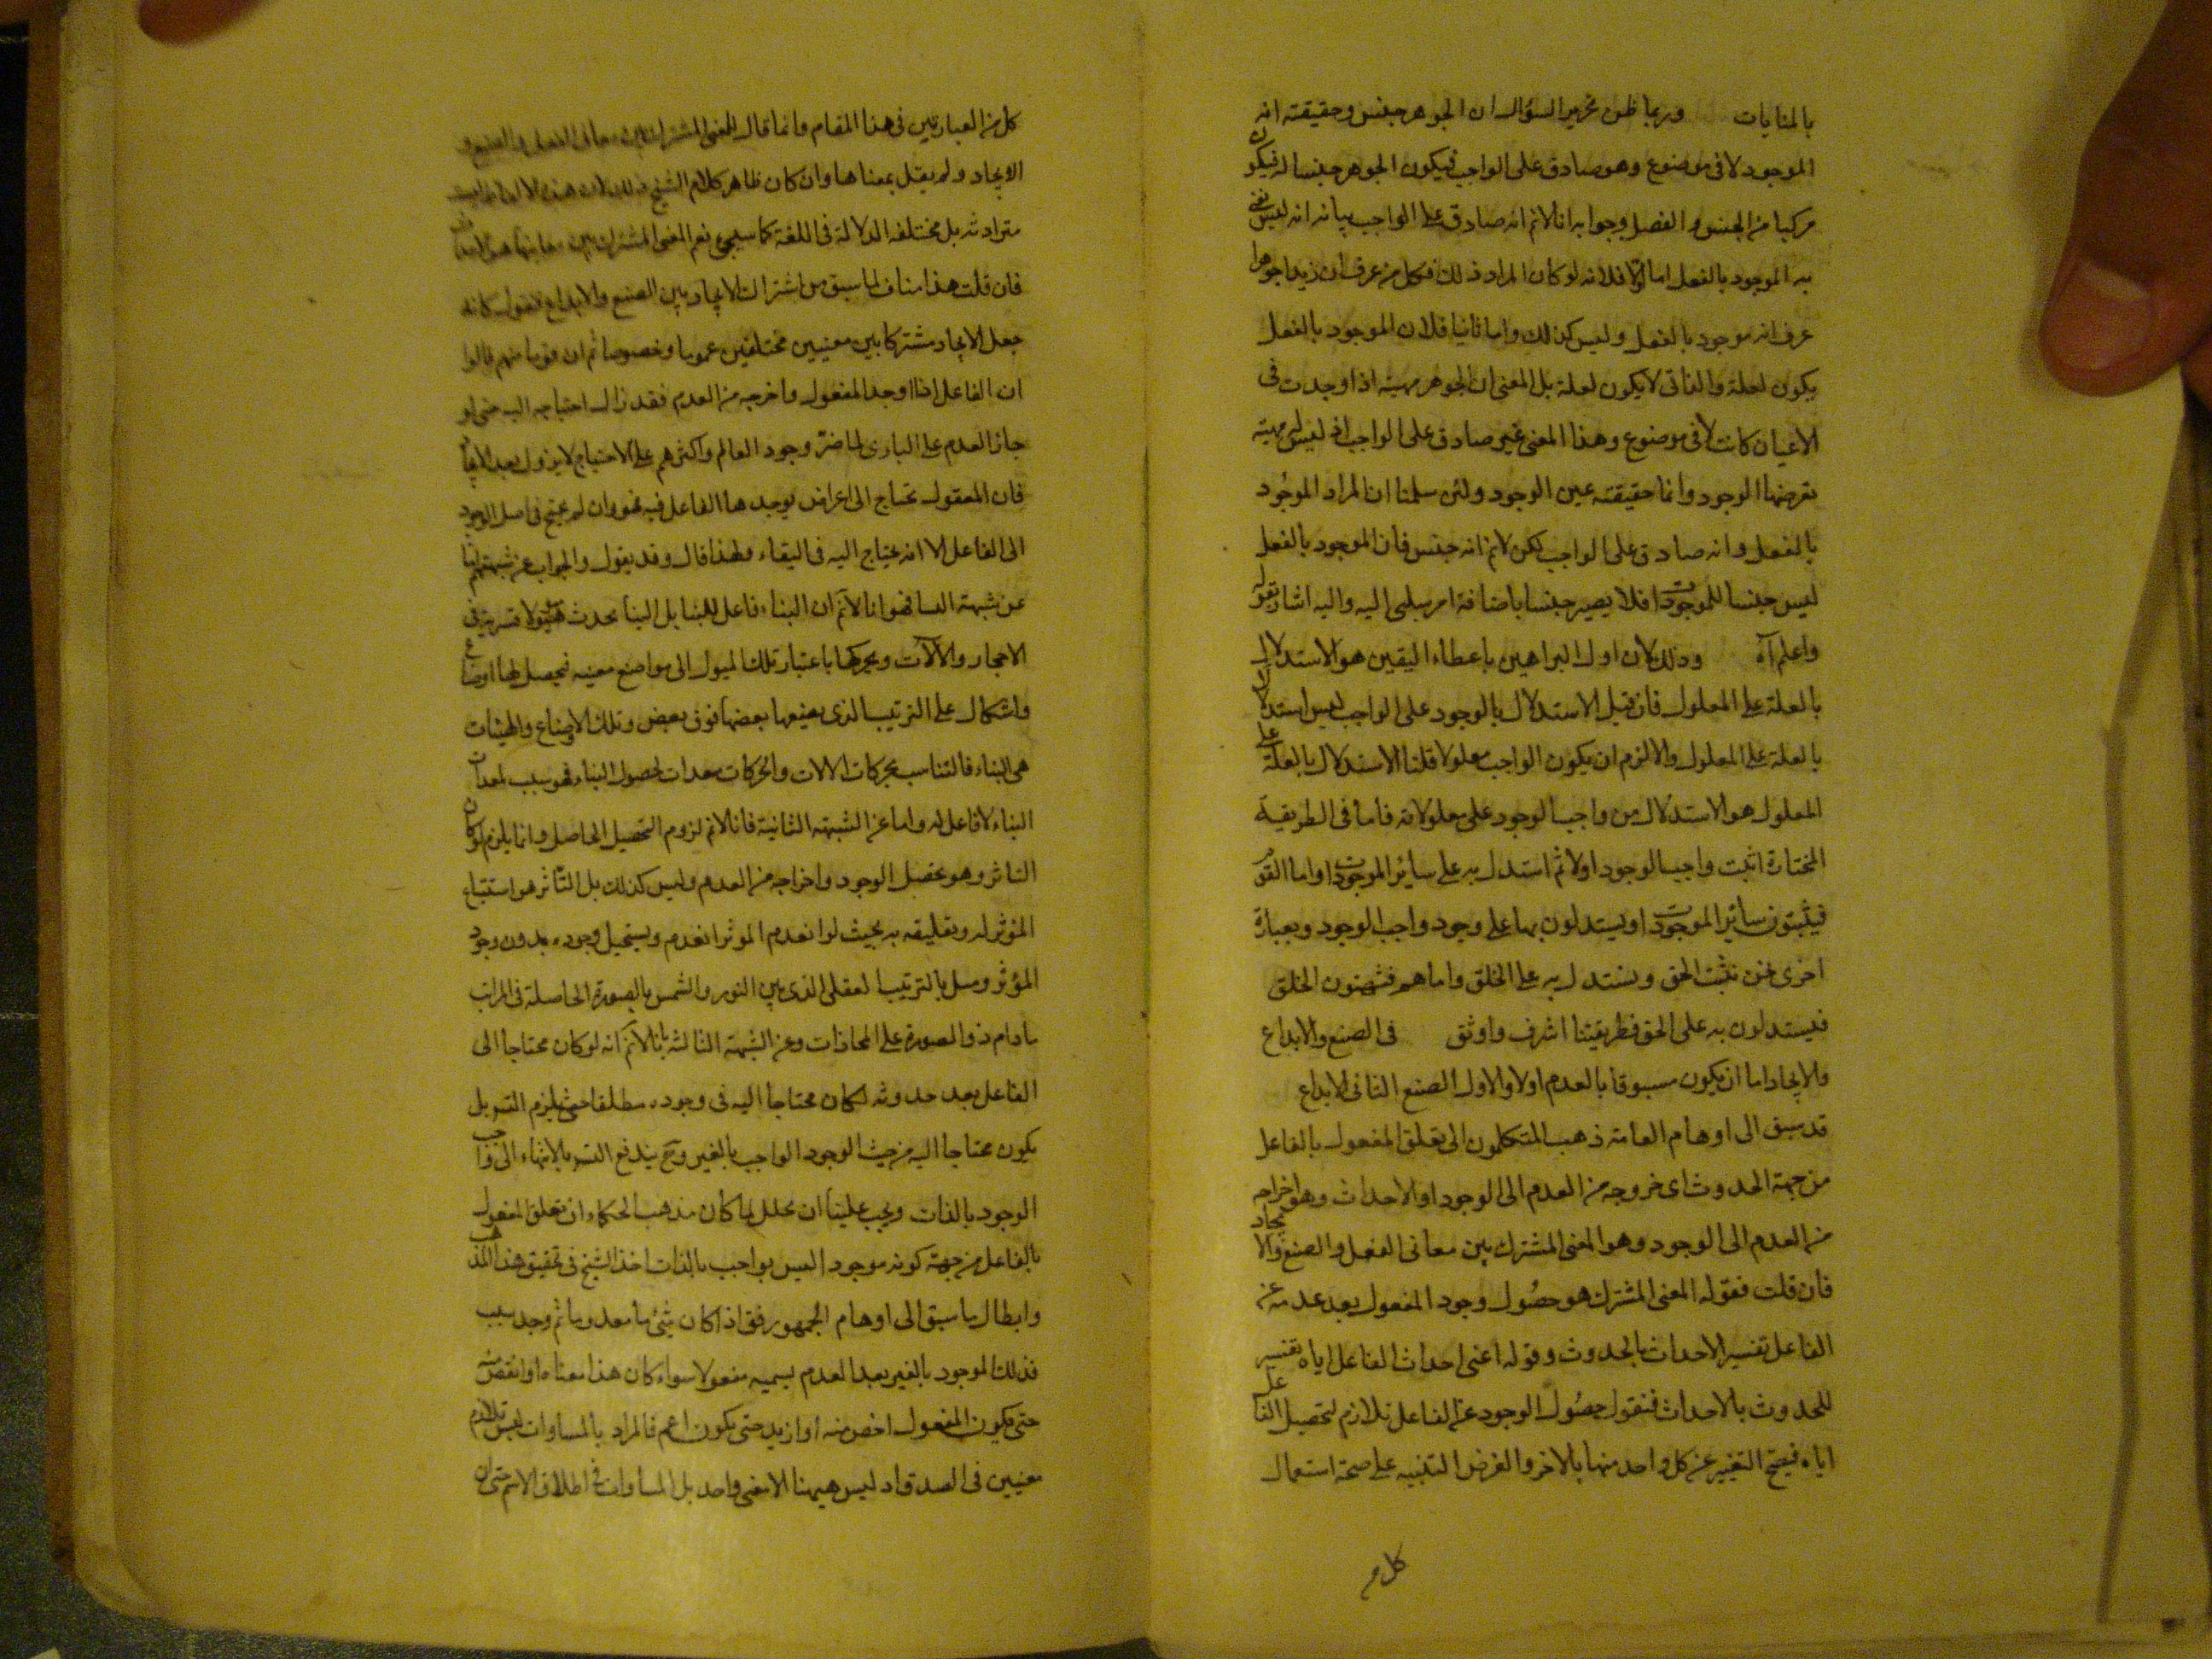 بالمنايات وربما ظن تحرير السؤال ان الجوهر جنس وحقيقته انه
الموجود لا فى موضوع وهو صادق على الواجب فيكون الجوهر جنسا له فيكون
مركبا من الجنس والفصل وجوابه انا لانم انه صادق على الواجب بيانه انه ليس نعنى
به الموجود بالفعل اما اولا فلانه لو كان المراد ذلك فكل من عرف ان زيدا جوهر
عرف انه موجود بالفعل وليس كذلك واما ثانيا فلان الموجود بالفعل
يكون لعلة والذاتى لا يكون لعلة بل المعنى ان الجوهر مهية اذا وجدت فى
الاعيان كانت لا فى موضوع وهذا المعنى غير صادق على الواجب اذ ليس له مهية
تعرضها الوجود وانما حقيقته عين الوجود ولئن سلمنا ان المراد الموجود
بالفعل وانه صادق على الواجب لكن لانم انه جنس فان الموجود بالفعل
ليس جنسا للموجودات فلا يصير جنسا باضافة امر سلبى اليه واليه اشار بقوله
واعلم آه وذلك لان اولى البراهين باعطاء اليقين هو الاستدلال
بالعلة على المعلول فان قيل الاستدلال بالوجود على الواجب ليس استدلالا
بالعلة على المعلول والا لزم ان يكون الواجب معلولا قلنا الاستدلال بالعلة على
المعلول هو الاستدلال من واجب الوجود على معلولاته فاما فى الطريقة
المختارة اثبت واجب الوجود اولا ثم استدل به على سائر الموجودات واما القوم
فيثبتون سائر الموجودات ويستدلون بها على وجود واجب الوجود وبعبارة
اخرى نحن نثبت الحق ونستدل به على الخلق واما هم فيثبتون الخلق
فيستدلون به على الحق فطريقتنا اشرف واوثق فى الصنع والابداع
والايجاد اما ان يكون مسبوقا بالعدم اولا والاول الصنع الثانى الابداع
قد سبق الى اوهام العامة ذهب المتكلمون الى تعلق المفعول بالفاعل
من جهة الحدوث اى خروجه من العدم الى الوجود او الاحداث وهو اخراجه
من العدم الى الوجود وهو المعنى المشترك بين معانى الفعل والصنع والايجاد
فان قلت فقوله المعنى المشترك هو حصول وجود المفعول بعد عدمه عن
الفاعل تفسير الاحداث بالحدوث وقوله اعنى احداث الفاعل اياه تفسير
للحدوث بالاحداث فنقول حصول الوجود عن الفاعل تلازم لتحصيل الفاعل
اياه فيصح التعبير عن كل واحد منهما بالاخر والغرض التنبيه على صحة استعمال
كل م
كل من العبارتين فى هذا المقام وانما قال المعنى المشترك بين معانى الفعل والصنع و
الايجاد ولم يقل بمعناها وان كان ظاهر كلام الشيخ ذلك لان هذه الالفاظ ليست
مترادفة بل مختلفه الدلالة فى اللغة كما سيجئ نعم المعنى المشترك بين معانيها هو الاحداث
فان قلت هذا مناف لما سبق من اشتراك الايجاد بين الصنع والابداع فنقول كانه
جعل الايجاد مشتركا بين معنيين مختلفين عموما وخصوصا ثم ان قوما منهم قالوا
ان الفاعل اذا اوجد المفعول واخرجه من العدم فقد زال احتياجه اليه حتى لو
جاز العدم على البارى لما ضر وجود العالم واكثرهم على الاحتياج لا يزول بعد الايجاد
فان المعقول تحتاج الى اعراض يوجدها الفاعل فيه فهو وان لم يحتج فى اصل الوجود
الى الفاعل الا انه يحتاج اليه فى البقاء ولهذا قال وقد يقول والجواب عن شبهتهم اما
عن شبهة البناء فهو انا لانم ان البناء فاعل للبنا بل البنا يحدث ميولا قسرية فى
الاحجار والآلات ويحركها باعتبار تلك الميول الى مواضع معينه فيحصل لها اوضاع
واشكال على الترتيب الذى يضعها بعضها فوق بعض وتلك الاوضاع والهيئات
هى البناء فالتناسب بحركات الالات والحركات معدات لحصول البناء فهو سبب لمعدات
البناء لا فاعل له واما عن الشبهة الثانية فانا لانم لزوم التحصيل الحاصل وانما يلزم لو كان
التاثر وهو تحصل الوجود واخراجه من العدم وليس كذلك بل التأثر هو استتباع
المؤثر له وتعليقه به بحيث لو انعدم المؤثر انعدم ويستحيل وجوده بدون وجود
المؤثر ومثل بالترتيب العقلى الذى بين النور والشمس بالصورة الحاصلة فى المرات
مادام ذو الصورة على المحاذات وعن الشبهة الثالثة بانا لانم انه لو كان محتاجا الى
الفاعل بعد حدوثه لكان محتاجا اليه فى وجوده مطلقا حتى يلزم التسه بل
يكون محتاجا اليه من حيث الوجود الواجب بالغير وح يندفع التسه بالانتهاء الى واجب
الوجود بالذات ويجب علينا ان نحلل لما كان مذهب الحكماء ان تعلق المفعول
بالفاعل من جهة كونه موجود اليس بواجب بالذات اخذ الشيخ فى تحقيق هذا المذهب
وابطال ما سبق الى اوهام الجمهور فق اذا كان شئ ما معدوما ثم وجد بسبب
فذلك الموجود بالغير بعد العدم يسميه مفعولا سواء كان هذا معناه او انقص منه
حتى يكون المفعول اخص منه او ازيد حتى يكون اعم فالمراد بالمساوات ليس تلازم
معنيين فى الصدق اذ ليس هيهنا الا معنى واحد بل المساوات فى اطلاق الاسم حتى ان